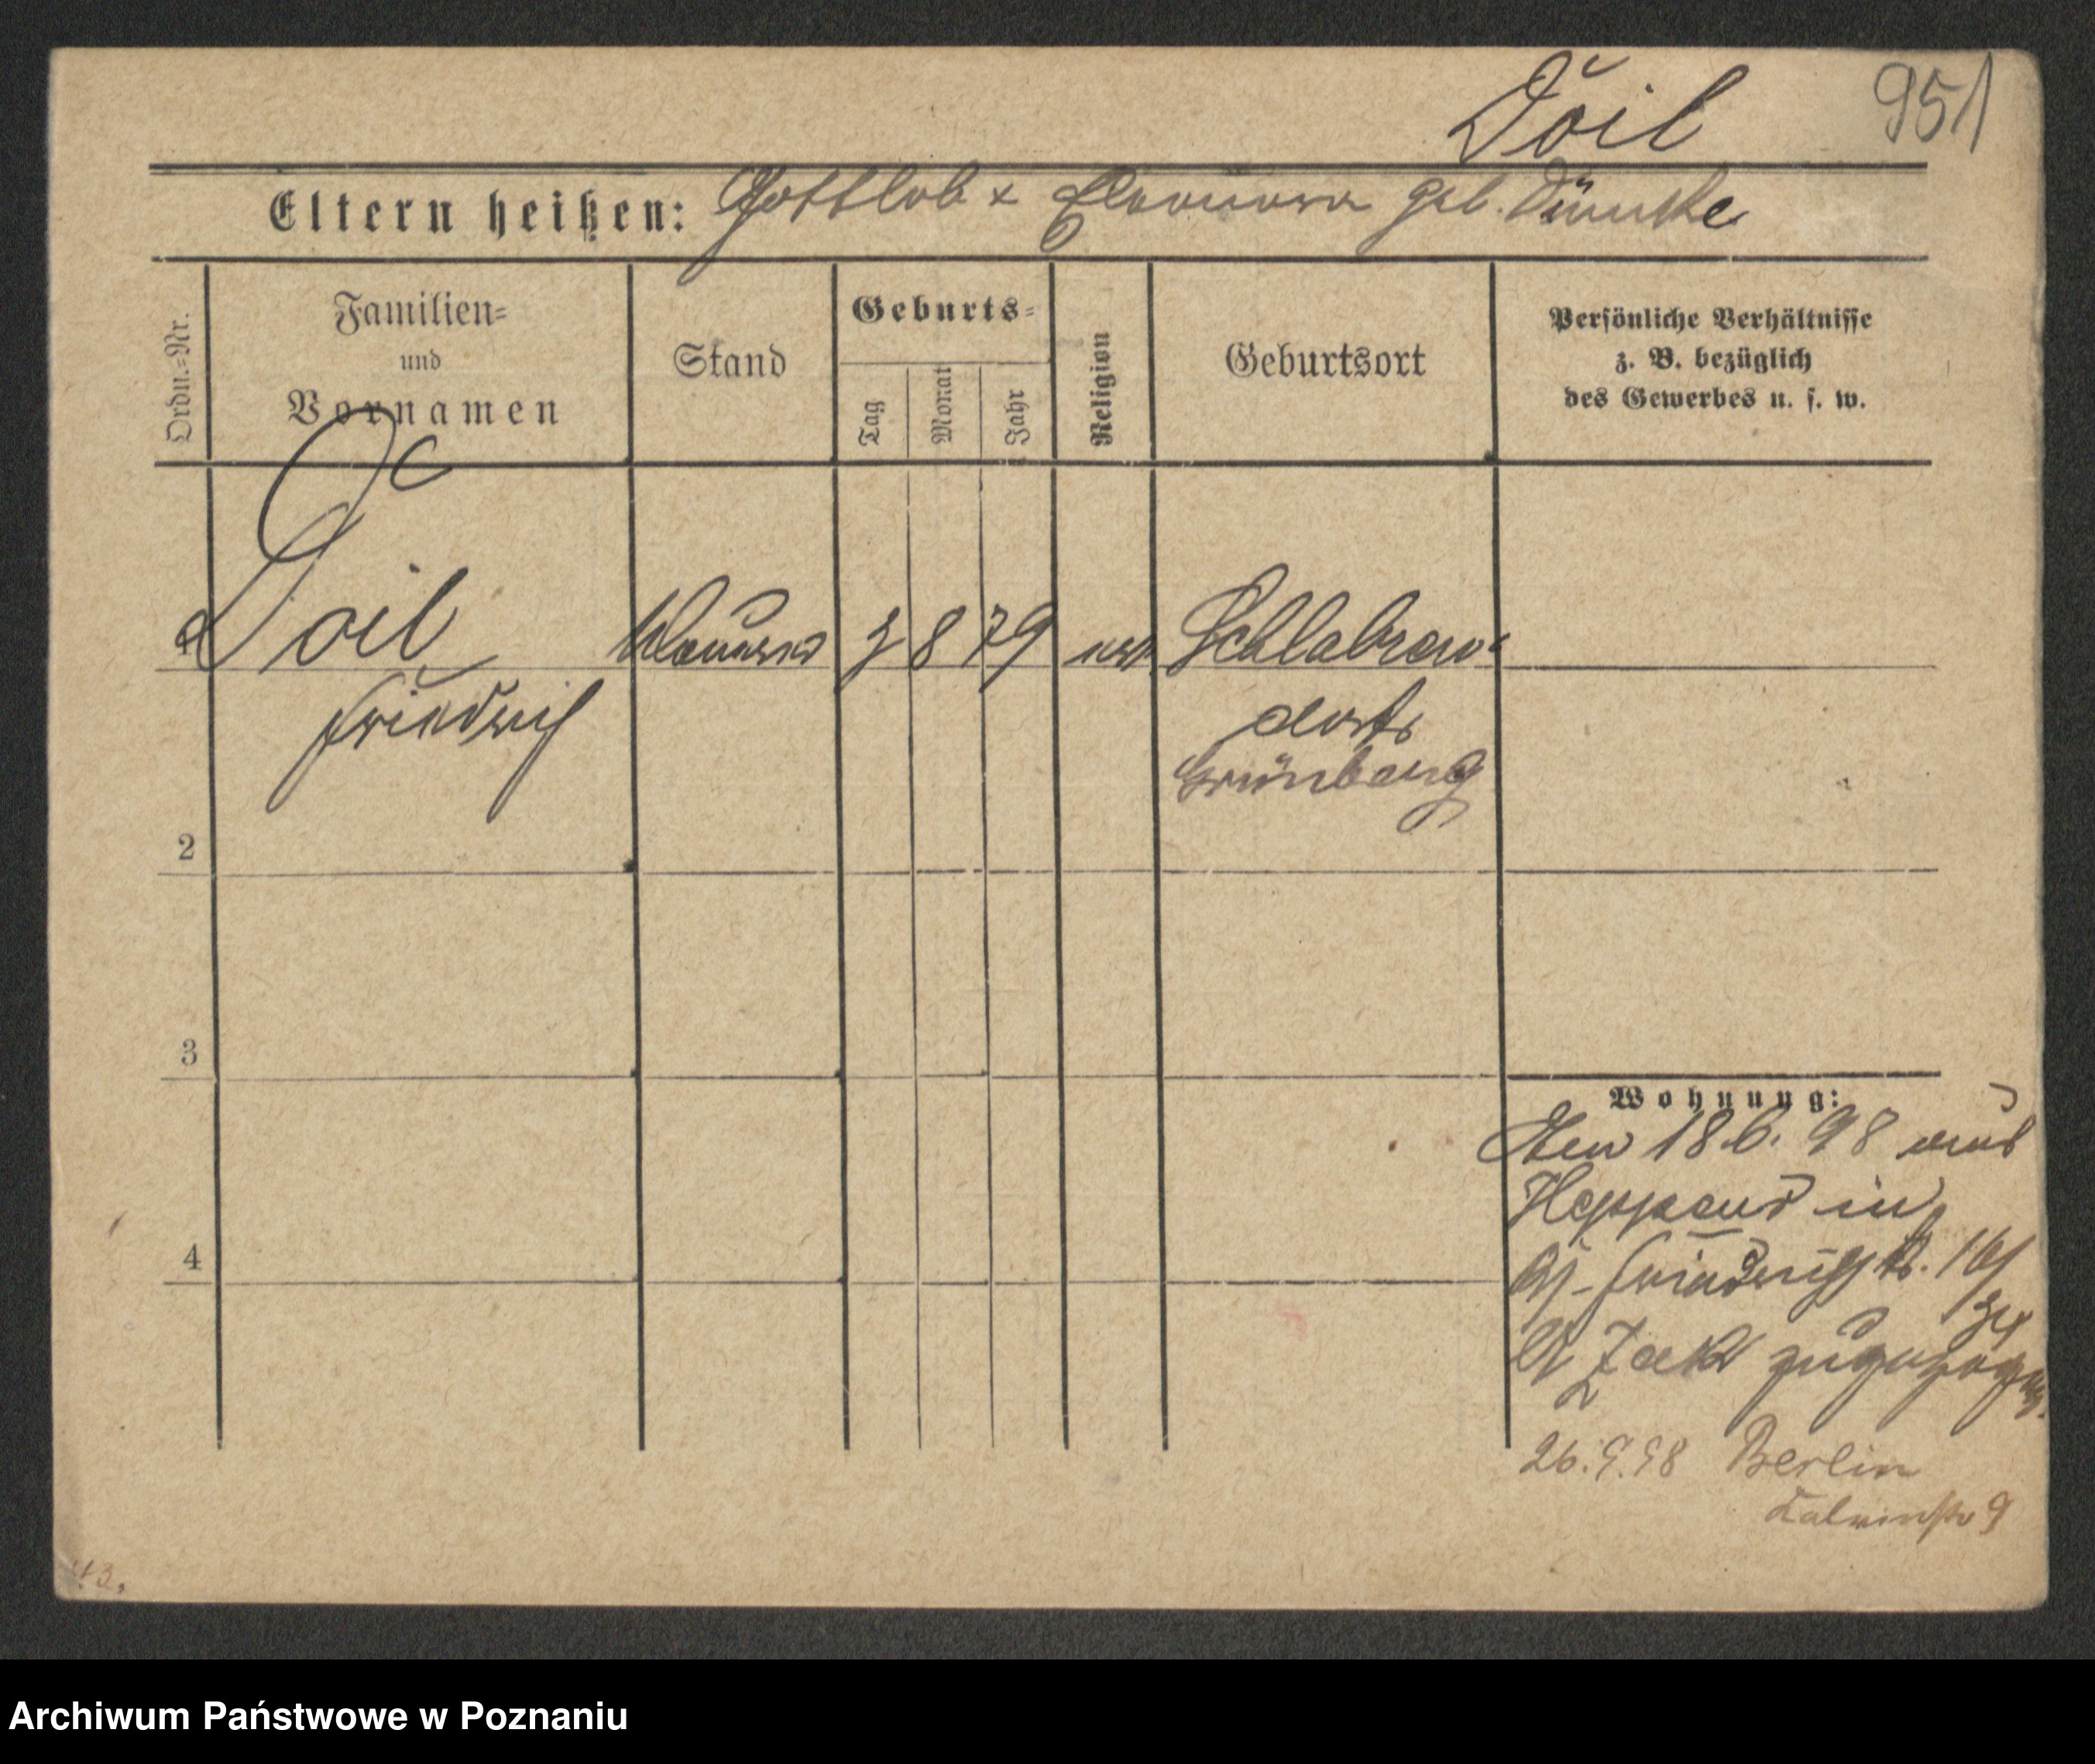 Doil 951
Eltern heißen: Gottlob & Eleonora geb. Dümke
Ordn.=Nr.
Familien=
und
Vornamen
Stand
Geburts=
Tag
Monat
Jahr
Religion
Geburtsort
Persönliche Verhältnisse
z. B. bezüglich
des Gewerbes u. s. w.
Doil 8 79 Schlabren=
Friedrich dorf
Grünberg
2
3
4
Wohnung:
Den 18.6.98 aus
in
Friedrichstr. 16/
zugezogen.
26.9.98 Berlin
Calvinstr 9
Archiwum Państwowe w Poznaniu